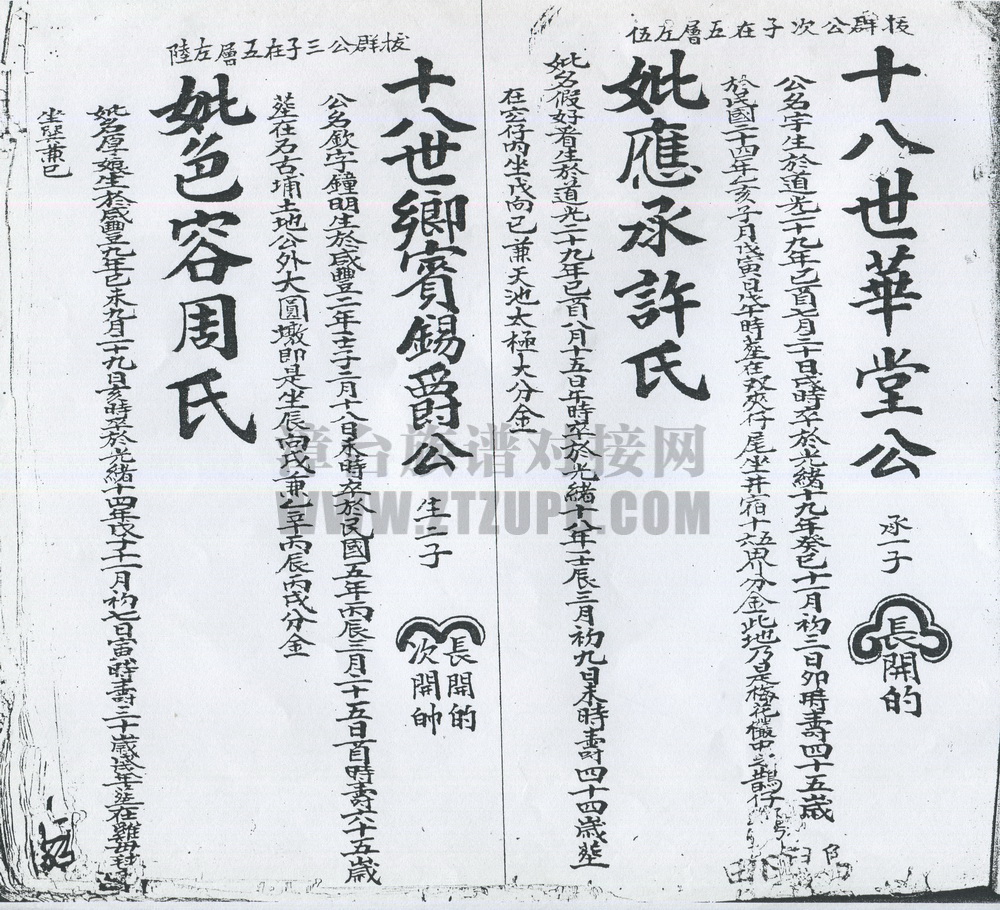 拔群公次子在五層左伍
十八世華堂公
承一子
長開的
公名字生於道光二十九年己酉七月二十日戌時卒於光緒十九年癸巳十一月初三日卯時壽四十五歲
於民國二十四年乙亥子月戊寅日戊午時葬在 夾仔尾坐井宿十六 界分金此地乃是梅花 中之鵲仔
妣應承許氏
妣名假好看生於道光二十九年己酉八月十五日午時卒於光緒十八年壬辰三月初九日未時壽四十四歲葬
在 仔內坐戊向己兼天池太極大分金
拔群公三子在五層左陸
十八世鄉賓錫爵公
生二子
長開的
次開帥
公名欽字鐘明生於咸豐二年壬子二月十八日未時卒於民國五年丙辰三月二十五日酉時壽六十五歲
葬在名古埔土地公外大圓墩即是坐辰向戌兼 辛丙辰丙戌分金
妣色容周氏
妣名厚娘生於咸豐九年己未九月二十九日亥時卒於光緒十四年戊子十一月初七日寅時壽三十歲 年葬在雞母
坐 兼巳
漳台族谱对接网
WWW.ZTZUPU.COM